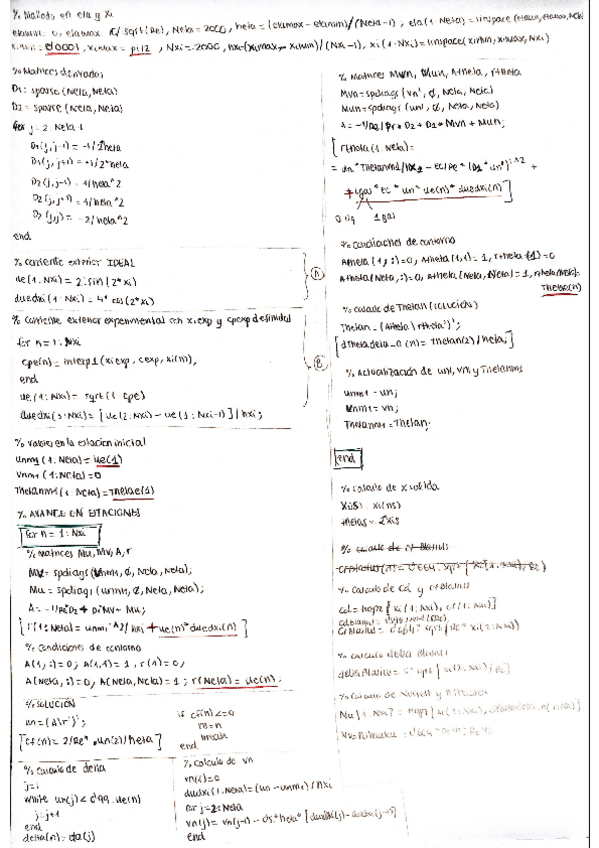 % Mallado en eta y xi
etamin = 0, etamax = 10/sqrt(Re), Neta = 2000, heta = (etamax-etamin)/(Neta-1), eta(1:Neta) = linspace(etamin, etamax, Neta)
ximin = 0'0001, ximax = pi/2, Nxi = 2000, hxi = (ximax-ximin)/(Nxi-1), xi(1:Nxi) = linspace(ximin, ximax, Nxi)
% Matrices derivadas
D1 = sparse (Neta, Neta)
D2 = sparse (Neta, Neta)
for j = 2: Neta-1
D1(j,j-1) = -1/2*heta
D1(j,j+1) = +1/2*heta
D2(j,j-1) = 1/heta^2
D2(j,j+1) = 1/heta^2
D2(j,j) = -2/heta^2
end
% Corriente exterior IDEAL
ue(1:Nxi) = 2*sin(2*xi)
duedxi(1:Nxi) = 4*cos(2*xi)
% Corriente exterior experimental con xiexp y cpexp definidad
for n = 1:Nxi
cpe(n) = interp1(xiexp, cexp, xi(n));
end
ue(1:Nxi) = sqrt(1-cpe)
duedxi(1:Nxi) = [ue(2:Nxi) - ue(1:Nxi-1)]/hxi;
% Valores en la estacion inicial
Unm1(1:Neta) = ue(1)
Vnm1(1:Neta) = 0
Thetanm1(1:Neta) = Thetae(1)
% AVANCE EN ESTACIONES
for n = 1:Nxi
% Matrices Mu, Mv, A, r
Mv = spdiags(Vnm1, 0, Neta, Neta);
Mu = spdiags(unm1, 0, Neta, Neta);
A = -1/Re*D2 + D1*Mv + Mu;
[r(1:Neta) = unm1^2/hxi + ue(n)*duedxi(n)]
% Condiciones de contorno
A(1,:)=0; A(1,1)=1, r(1)=0;
A(Neta,:)=0; A(Neta,Neta)=1; r(Neta)=ue(n);
% SOLUCIÓN
un = (A\r')';
[cf(n) = 2/Re*un(2)/heta]
if cf(n)<=0
ns=n
break
end
% Calculo de delta
j=1
while un(j) < 0'99*ue(n)
j=j+1
end
delta(n) = eta(j)
% Calculo de vn
vn(1)=0
dudxi(1:Neta) = (un-unm1)/hxi
for j=2:Neta
vn(j) = vn(j-1) - 0'5*heta*[dudxi(j)-dudxi(j-1)]
end
% Matrices Mvn, Mun, Atheta, rtheta
Mvn = spdiags(vn', 0, Neta, Neta)
Mun = spdiags(un', 0, Neta, Neta)
A = -1/Re/Pr*D2 + D1*Mvn + Mun;
[rtheta(1:Neta) =
= un*Thetanm1/hxi - EC/Re*(D1*un')'^2 +
+ igas*EC*un*ue(n)*duedxi(n)]
0 liq 1 gas
% Condiciones de contorno
Atheta(1,:)=0, Atheta(1,1)=1, rtheta(1)=0
Atheta(Neta,:)=0, Atheta(Neta,Neta)=1, rtheta(Neta)=
Thetae(n)
% Calculo de Thetan (SOLUCIÓN)
Thetan = (Atheta\rtheta')';
[dThetadeta_0(n) = Thetan(2)/heta;]
% Actualización de un1, vn1 y Thetanm1
unm1 = un;
Vnm1 = vn;
Thetanm1 = Thetan;
end
% Calculo de x salida
xi(ns)
% Calculo de Cd y cfBlasius
% Calculo delta Blasius